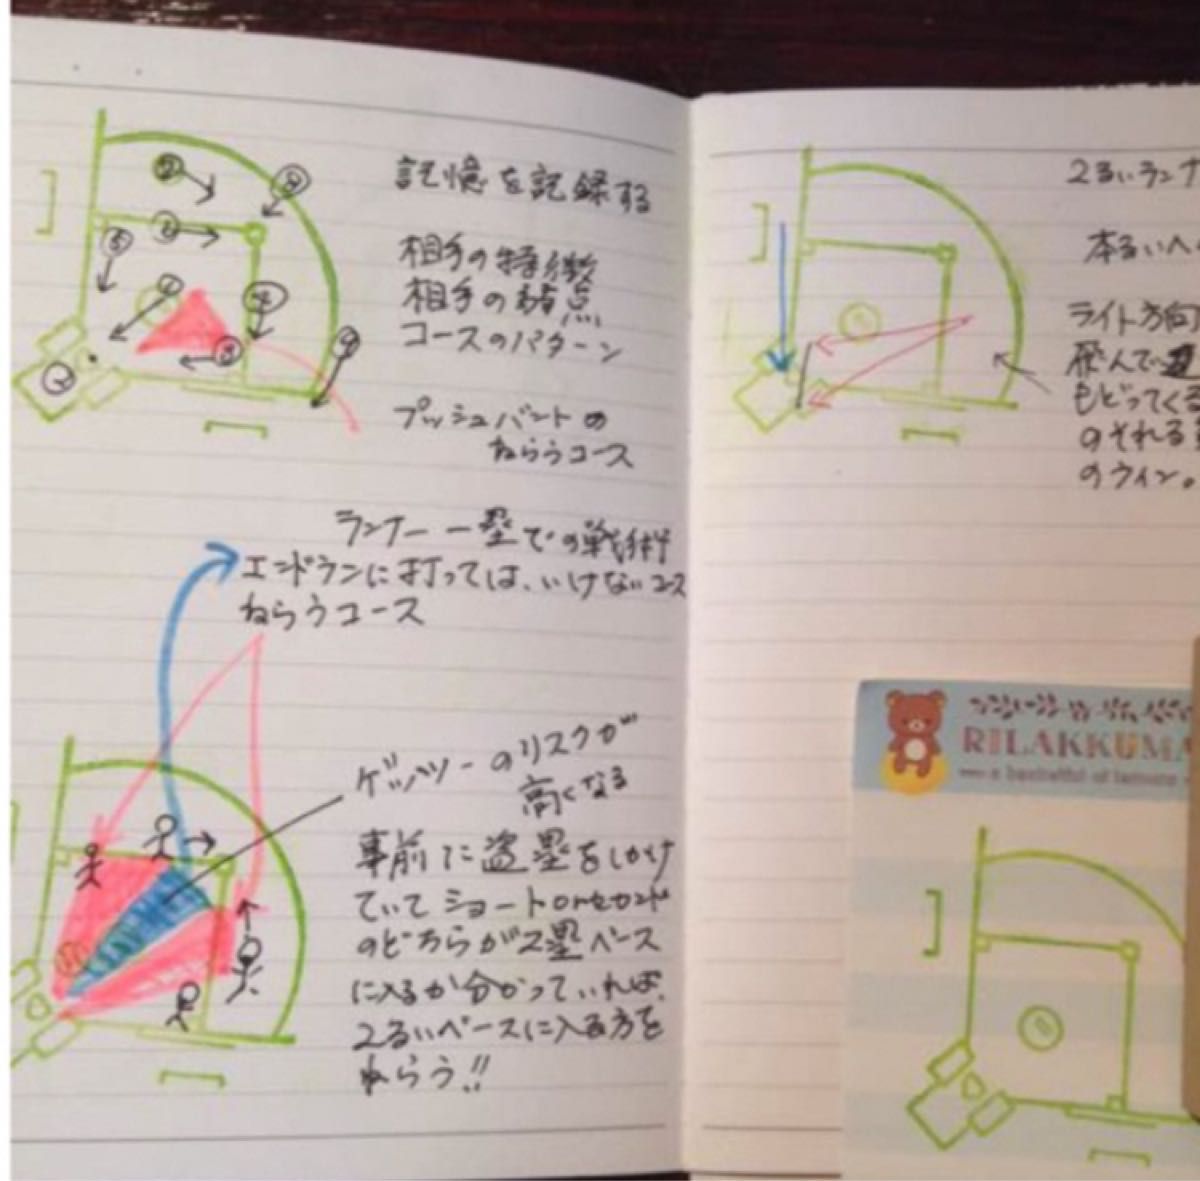 記憶を記録する
相手の特徴
相手の弱点
コースのパターン
プッシュバントの
ねらうコース
ランナー一塁での戦術
エンドランに打っては、いけないコース
ねらうコース
ゲッツーのリスクが
高くなる
事前に盗塁をしかけ
ていてショートorセカンド
のどちらが2塁ベース
に入るか分かっていれば、
2るいベースに入る方を
ねらう!!
2るいランナ
本るいへ
ライト方向
飛んで
もどってくる
のそれる
のライン。
RILAKKUMA